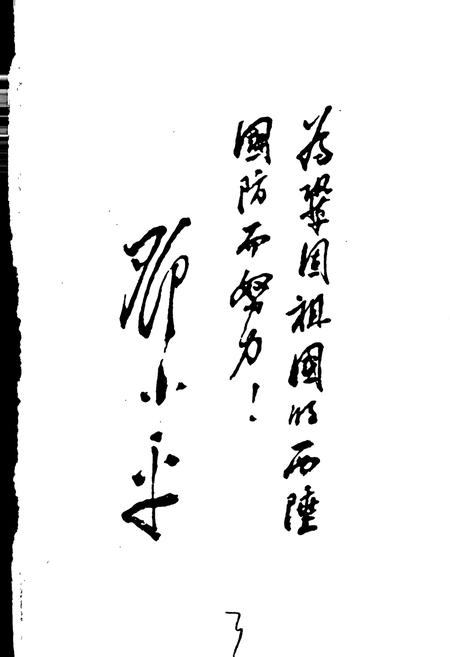 为鞏固祖國的西陲
國防而努力！
邓小平
3